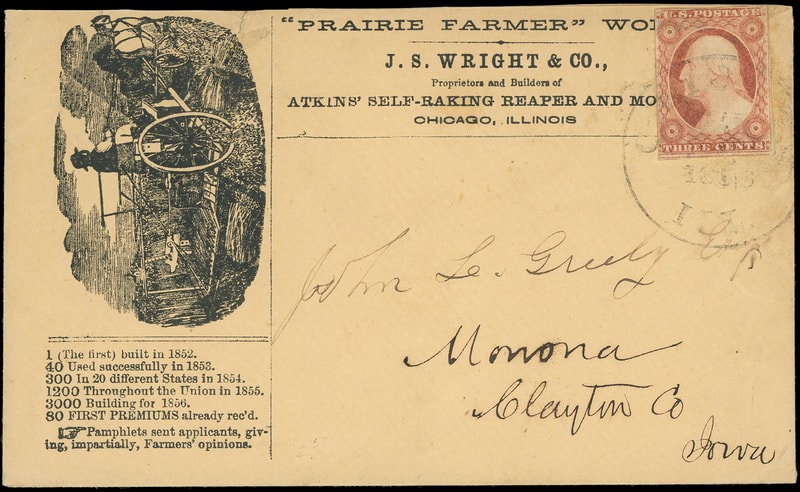 "PRAIRIE FARMER" WO
J. S. WRIGHT & CO.,
Proprietors and Builders of
ATKINS' SELF-RAKING REAPER AND MO
CHICAGO, ILLINOIS
U.S. POSTAGE
THREE CENTS
ILL
John L. Greely Esqr
Monona
Clayton Co
Iowa
1 (The first) built in 1852.
40 Used successfully in 1853.
300 In 20 different States in 1854.
1200 Throughout the Union in 1855.
3000 Building for 1856.
80 FIRST PREMIUMS already rec'd.
☞ Pamphlets sent applicants, giv-
ing, impartially, Farmers' opinions.